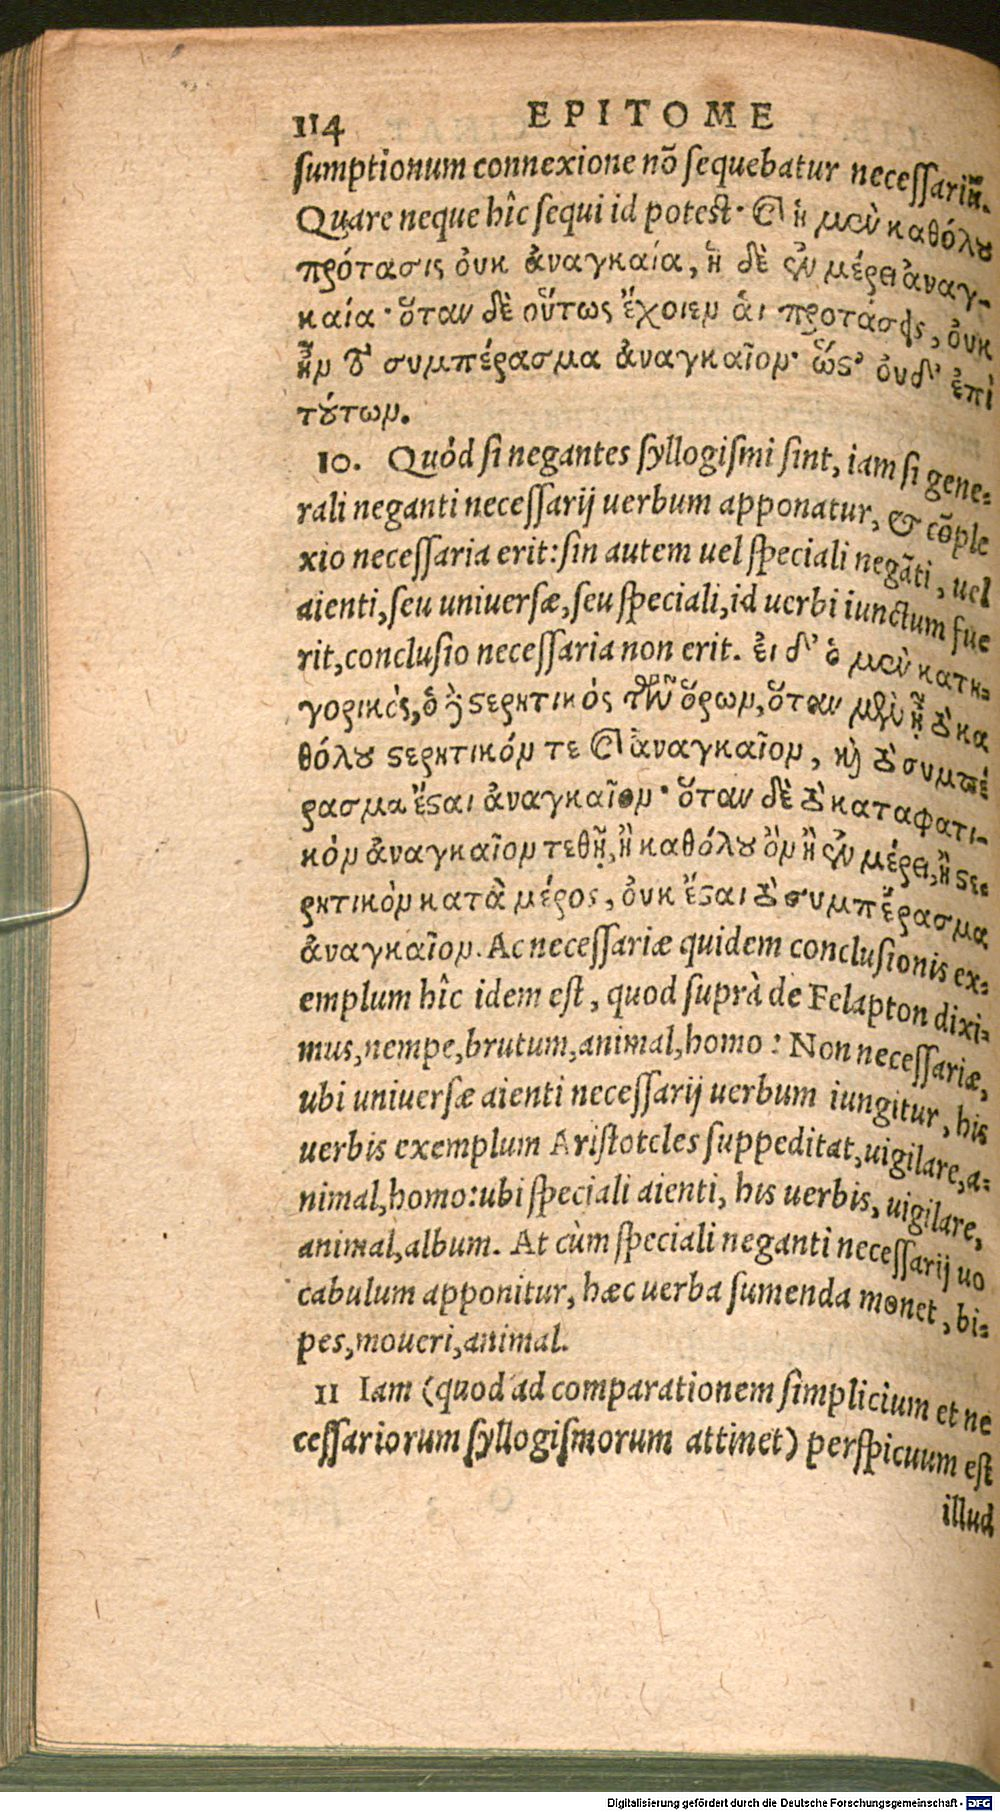 114 EPITOME
sumptionum connexione nõ sequebatur necessariũ.
Quare neque hîc sequi id potest. Εἰ ἡ μὲν καθόλου
πρότασις ὀυκ ἀναγκαία, ἡ δὲ ἐν μέρει ἀναγ-
καία· ὅταν δὲ οὕτως ἔχοιεν ἁι προτάσεις, ὀυκ
ἦν τὸ συμπέρασμα ἀναγκαῖον· ὥστ' ὀυδ' ἐπὶ
τούτων.
10. Quòd si negantes syllogismi sint, iam si gene-
rali neganti necessarij uerbum apponatur, & cõple
xio necessaria erit: sin autem uel speciali negãti, uel
aienti, seu uniuersæ, seu speciali, id uerbi iunctum fue
rit, conclusio necessaria non erit. ἐι δ' ὁ μὲν κατη-
γορικὸς, ὁ δὲ στερητικὸς τῶν ὅρων, ὅταν μὲν ᾖ τὸ κα
θόλου στερητικόν τε καὶ ἀναγκαῖον, καὶ τὸ συμπέ
ρασμα ἔσται ἀναγκαῖον· ὅταν δὲ τὸ καταφατι-
κὸν ἀναγκαῖον τεθῇ, ἢ καθόλου ὂν ἢ ἐν μέρει, ἢ στε-
ρητικὸν κατὰ μέρος, ὀυκ ἔσται τὸ συμπέρασμα
ἀναγκαῖον. Ac necessariæ quidem conclusionis ex-
emplum hîc idem est, quod suprà de Felapton dixi-
mus, nempe, brutum, animal, homo: Non necessariæ,
ubi uniuersæ aienti necessarij uerbum iungitur, his
uerbis exemplum Aristoteles suppeditat, uigilare, a-
nimal, homo: ubi speciali aienti, his uerbis, uigilare,
animal, album. At cùm speciali neganti necessarij uo
cabulum apponitur, hæc uerba sumenda monet, bi-
pes, moueri, animal.
11 Iam (quod ad comparationem simplicium et ne
cessariorum syllogismorum attinet) perspicuum est
illud
Digitalisierung gefördert durch die Deutsche Forschungsgemeinschaft - DFG